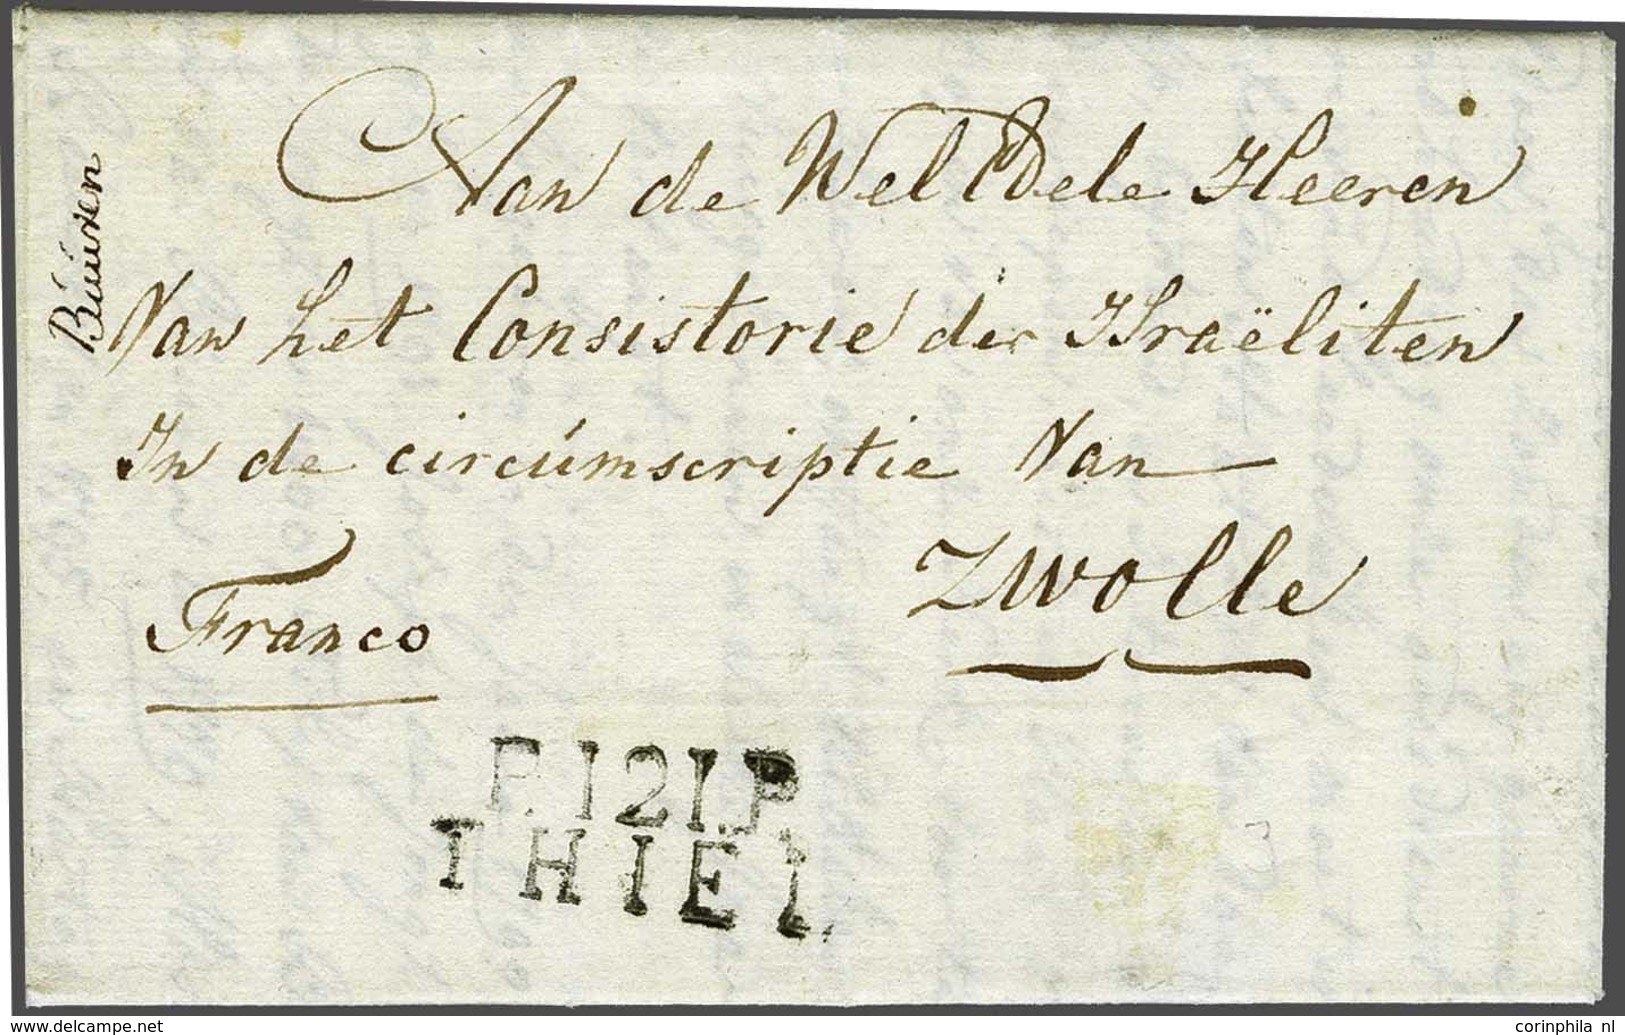 Buuren
Aan de Wel Edele Heeren
Van het Consistorie der Israëliten
In de circúmscriptie Van
Zwolle
Franco
P.121.P.
THIEL.
www.delcampe.net
corinphila nl